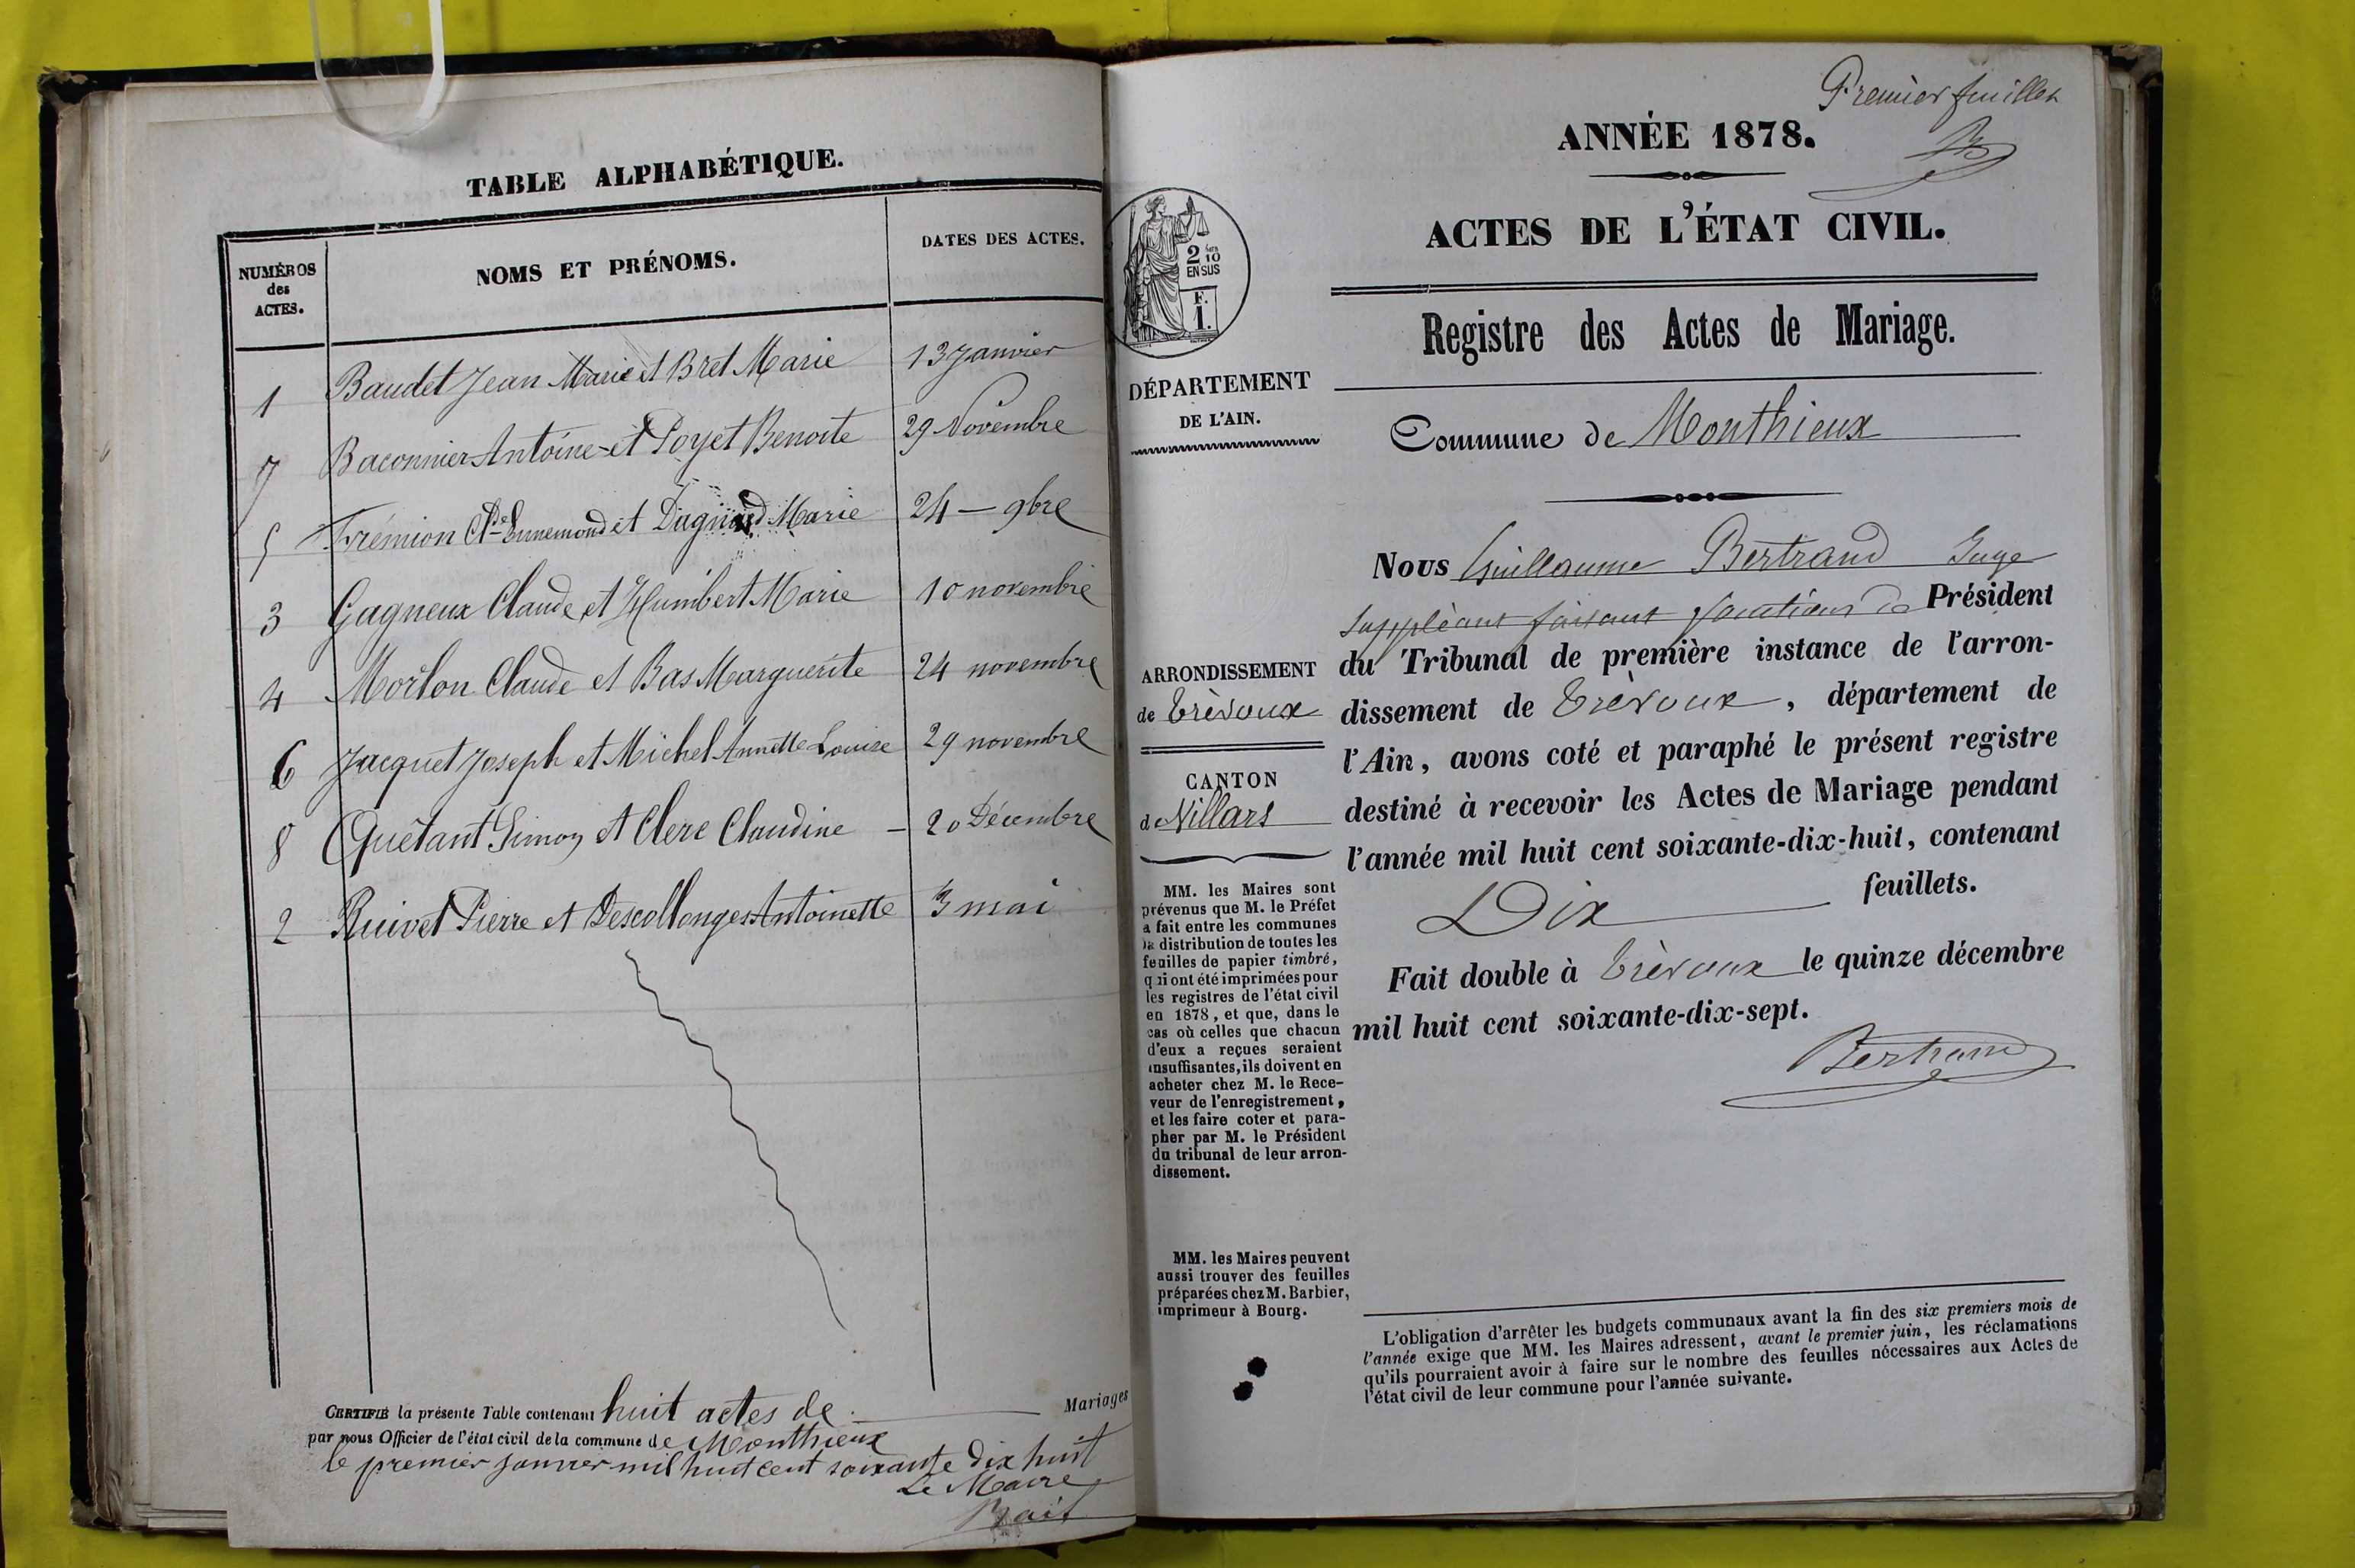 TABLE ALPHABÉTIQUE.
NUMÉROS
des
ACTES.
NOMS ET PRÉNOMS.
DATES DES ACTES.
1 Baudet Jean Marie et Bret Marie 13 Janvier
7 Baconnier Antoine et Poyet Benoite 29 Novembre
5 Frémion Cde Ennemond et Marie 24 — 9bre
3 Gagneux Claude et Humbert Marie 10 novembre
4 Morlon Claude et Bas Marguerite 24 novembre
6 Jacquet Joseph et Michel Annette Louise 29 novembre
8 Quétant Simon et Clerc Claudine — 20 Décembre
2 Ruivet Pierre et Descollonges Antoinette 3 mai
CERTIFIÉ la présente Table contenant huit actes de Mariages
par nous Officier de l'état civil de la commune de Monthieux
le premier janvier mil huit cent soixante dix huit
Le Maire
Premier feuillet
ANNÉE 1878.
ACTES DE L'ÉTAT CIVIL.
2 10
EN SUS
F.
1.
Registre des Actes de Mariage.
DÉPARTEMENT
DE L'AIN.
Commune de Monthieux
ARRONDISSEMENT
de Trévoux
CANTON
de Villars
MM. les Maires sont
prévenus que M. le Préfet
a fait entre les communes
la distribution de toutes les
feuilles de papier timbré,
qui ont été imprimées pour
les registres de l'état civil
en 1878, et que, dans le
cas où celles que chacun
d'eux a reçues seraient
insuffisantes, ils doivent en
acheter chez M. le Rece-
veur de l'enregistrement,
et les faire coter et para-
pher par M. le Président
du tribunal de leur arron-
dissement.
MM. les Maires peuvent
aussi trouver des feuilles
préparées chez M. Barbier,
imprimeur à Bourg.
Nous Guillaume Bertrand Juge
suppléant faisant fonctions de Président
du Tribunal de première instance de l'arron-
dissement de Trévoux, département de
l'Ain, avons coté et paraphé le présent registre
destiné à recevoir les Actes de Mariage pendant
l'année mil huit cent soixante-dix-huit, contenant
Dix feuillets.
Fait double à Trévoux le quinze décembre
mil huit cent soixante-dix-sept.
Bertrand
L'obligation d'arrêter les budgets communaux avant la fin des six premiers mois de
l'année exige que MM. les Maires adressent, avant le premier juin, les réclamations
qu'ils pourraient avoir à faire sur le nombre des feuilles nécessaires aux Actes de
l'état civil de leur commune pour l'année suivante.